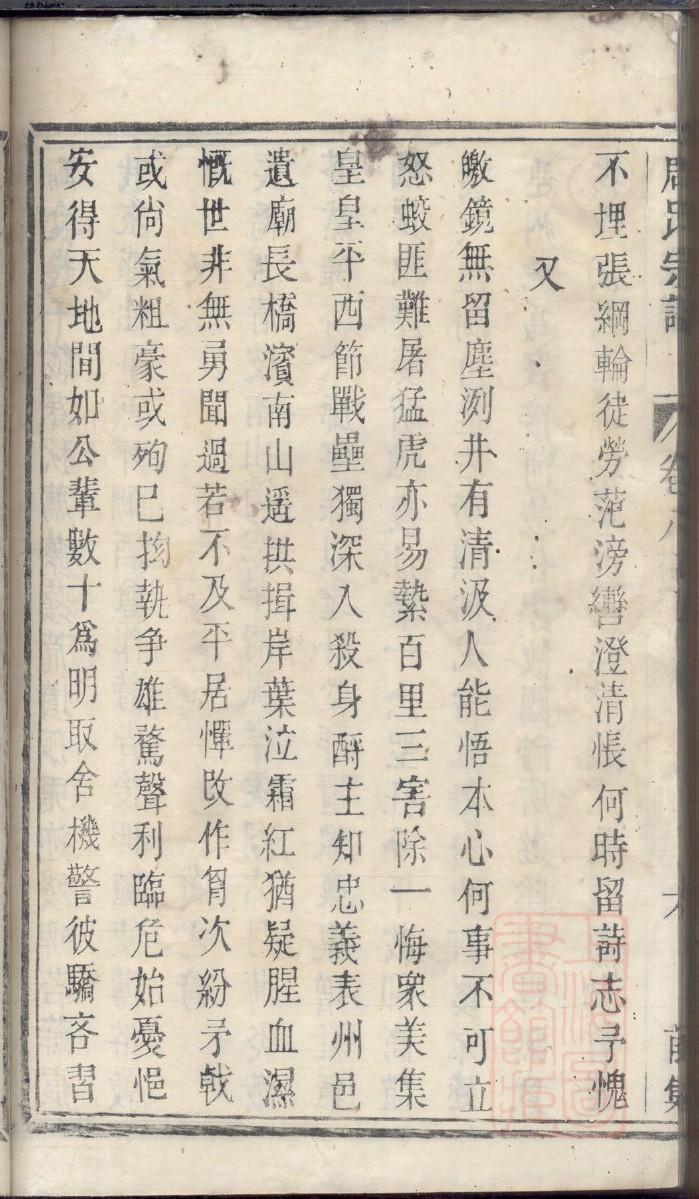 周氏宗譜 卷八 六 前集
不埋張綱輪徒勞范滂轡澄清悵何時留詩志予愧
又
皦鏡無留塵冽井有清汲人能悟本心何事不可立
怒蛟匪難屠猛虎亦易縶百里三害除一悔衆美集
皇皇平西節戰壘獨深入殺身酧主知忠義表州邑
遺廟長橋濱南山遥拱揖岸葉泣霜紅猶疑腥血濕
慨世非無勇聞過若不及平居憚攺作胷次紛矛戟
或尙氣粗豪或殉巳拘執争雄驁聲利臨危始憂悒
安得天地間如公輩數十爲明取舍機警彼驕吝習